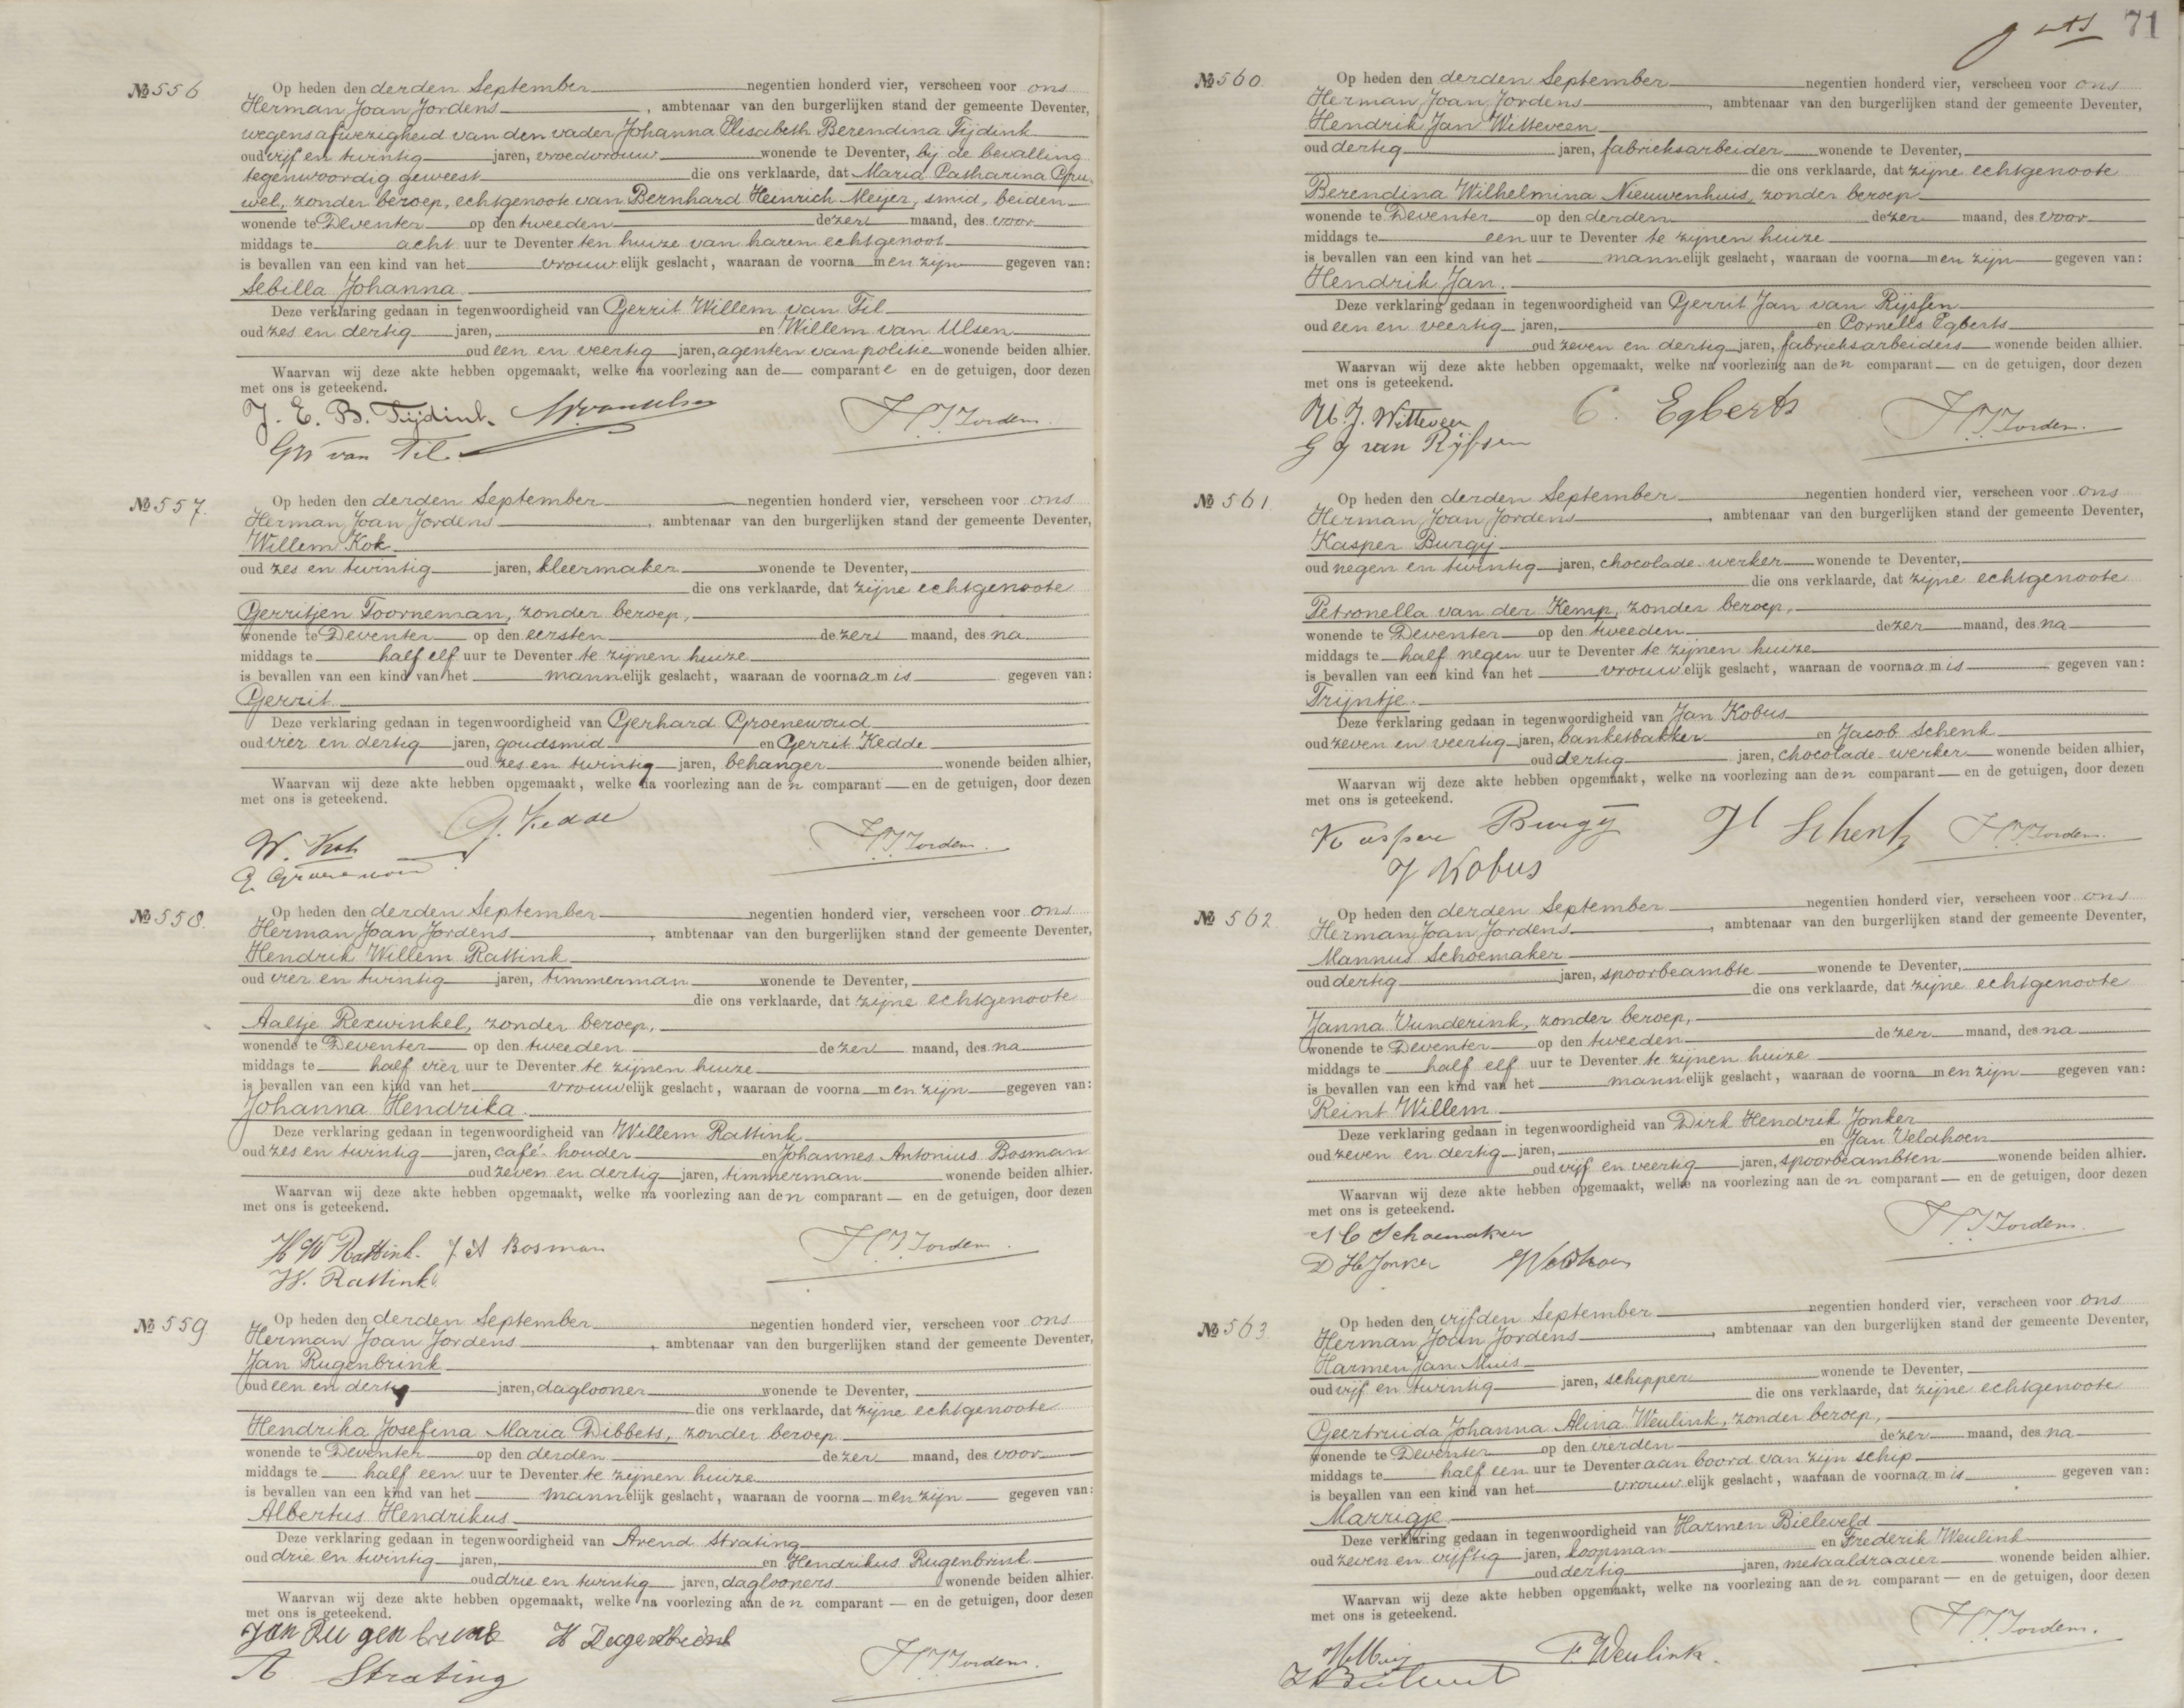 71
№ 556
Op heden den derden September negentien honderd vier, verscheen voor ons
Herman Joan Jordens, ambtenaar van den burgerlijken stand der gemeente Deventer,
wegens afwezigheid van den vader Johanna Elisabeth Berendina Tijdink
oud vijf en twintig jaren, vroedvrouw wonende te Deventer, bij de bevalling
tegenwoordig geweest die ons verklaarde, dat Maria Catharina Gru-
wel, zonder beroep, echtgenoote van Bernhard Heinrich Meijer, smid, beiden
wonende te Deventer op den tweeden dezer maand, des voor
middags te acht uur te Deventer ten huize van haren echtgenoot
is bevallen van een kind van het vrouwelijk geslacht, waaraan de voorna men zijn gegeven van:
Sebilla Johanna.
Deze verklaring gedaan in tegenwoordigheid van Gerrit Willem van Til
oud zes en dertig jaren, en Willem van Ulsen
oud een en veertig jaren, agenten van politie wonende beiden alhier.
Waarvan wij deze akte hebben opgemaakt, welke na voorlezing aan de comparante en de getuigen, door dezen
met ons is geteekend.
J. E. B. Tijdink. W van Ulsen HJJordens.
GW van Til.
№ 557.
Op heden den derden September negentien honderd vier, verscheen voor ons
Herman Joan Jordens, ambtenaar van den burgerlijken stand der gemeente Deventer,
Willem Kok
oud zes en twintig jaren, kleermaker wonende te Deventer,
die ons verklaarde, dat zijne echtgenoote
Gerritjen Toorneman, zonder beroep,
wonende te Deventer op den eersten dezer maand, des na
middags te half elf uur te Deventer te zijnen huize
is bevallen van een kind van het mannelijk geslacht, waaraan de voornaam is gegeven van:
Gerrit.
Deze verklaring gedaan in tegenwoordigheid van Gerhard Groenewoud
oud vier en dertig jaren, goudsmid en Gerrit Kedde
oud zes en twintig jaren, behanger wonende beiden alhier,
Waarvan wij deze akte hebben opgemaakt, welke na voorlezing aan den comparant en de getuigen, door dezen
met ons is geteekend.
W. Kok G. Kedde HJJordens.
G. Groenewoud
№ 558.
Op heden den derden September negentien honderd vier, verscheen voor ons
Herman Joan Jordens, ambtenaar van den burgerlijken stand der gemeente Deventer,
Hendrik Willem Rattink
oud vier en twintig jaren, timmerman wonende te Deventer,
die ons verklaarde, dat zijne echtgenoote
Aaltje Rexwinkel, zonder beroep,
wonende te Deventer op den tweeden dezer maand, des na
middags te half vier uur te Deventer te zijnen huize
is bevallen van een kind van het vrouwelijk geslacht, waaraan de voorna men zijn gegeven van:
Johanna Hendrika.
Deze verklaring gedaan in tegenwoordigheid van Willem Rattink
oud zes en twintig jaren, café-houder en Johannes Antonius Bosman
oud zeven en dertig jaren, timmerman wonende beiden alhier.
Waarvan wij deze akte hebben opgemaakt, welke na voorlezing aan den comparant en de getuigen, door dezen
met ons is geteekend.
HW Rattink. J A Bosman HJJordens.
W. Rattink
№ 559
Op heden den derden September negentien honderd vier, verscheen voor ons
Herman Joan Jordens, ambtenaar van den burgerlijken stand der gemeente Deventer,
Jan Rugenbrink
oud een en dertig jaren, daglooner wonende te Deventer,
die ons verklaarde, dat zijne echtgenoote
Hendrika Josefina Maria Dibbets, zonder beroep
wonende te Deventer op den derden dezer maand, des voor
middags te half een uur te Deventer te zijnen huize
is bevallen van een kind van het mannelijk geslacht, waaraan de voorna men zijn gegeven van:
Albertus Hendrikus
Deze verklaring gedaan in tegenwoordigheid van Arend Strating
oud drie en twintig jaren, en Hendrikus Rugenbrink
oud drie en twintig jaren, daglooners wonende beiden alhier.
Waarvan wij deze akte hebben opgemaakt, welke na voorlezing aan den comparant en de getuigen, door dezen
met ons is geteekend.
Jan Rugenbrink H Rugenbrink HJJordens.
A Strating
№ 560.
Op heden den derden September negentien honderd vier, verscheen voor ons
Herman Joan Jordens, ambtenaar van den burgerlijken stand der gemeente Deventer,
Hendrik Jan Witteveen
oud dertig jaren, fabrieksarbeider wonende te Deventer,
die ons verklaarde, dat zijne echtgenoote
Berendina Wilhelmina Nieuwenhuis, zonder beroep
wonende te Deventer op den derden dezer maand, des voor
middags te een uur te Deventer te zijnen huize
is bevallen van een kind van het mannelijk geslacht, waaraan de voorna men zijn gegeven van:
Hendrik Jan.
Deze verklaring gedaan in tegenwoordigheid van Gerrit Jan van Rijssen
oud een en veertig jaren, en Cornelis Egberts
oud zeven en dertig jaren, fabrieksarbeiders wonende beiden alhier.
Waarvan wij deze akte hebben opgemaakt, welke na voorlezing aan den comparant en de getuigen, door dezen
met ons is geteekend.
H. J. Witteveen C. Egberts HJJordens.
G J van Rijssen
№ 561.
Op heden den derden September negentien honderd vier, verscheen voor ons
Herman Joan Jordens, ambtenaar van den burgerlijken stand der gemeente Deventer,
Kasper Burgij
oud negen en twintig jaren, chocolade-werker wonende te Deventer,
die ons verklaarde, dat zijne echtgenoote
Petronella van der Kemp, zonder beroep,
wonende te Deventer op den tweeden dezer maand, des na
middags te half negen uur te Deventer te zijnen huize
is bevallen van een kind van het vrouwelijk geslacht, waaraan de voornaam is gegeven van:
Trijntje.
Deze verklaring gedaan in tegenwoordigheid van Jan Kobus
oud zeven en veertig jaren, banketbakker en Jacob Schenk
oud dertig jaren, chocolade-werker wonende beiden alhier,
Waarvan wij deze akte hebben opgemaakt, welke na voorlezing aan den comparant en de getuigen, door dezen
met ons is geteekend.
Kasper Burgij Schenk HJJordens.
J Kobus
№ 562.
Op heden den derden September negentien honderd vier, verscheen voor ons
Herman Joan Jordens, ambtenaar van den burgerlijken stand der gemeente Deventer,
Mannus Schoemaker
oud dertig jaren, spoorbeambte wonende te Deventer,
die ons verklaarde, dat zijne echtgenoote
Janna Vunderink, zonder beroep,
wonende te Deventer op den tweeden dezer maand, des na
middags te half elf uur te Deventer te zijnen huize
is bevallen van een kind van het mannelijk geslacht, waaraan de voorna men zijn gegeven van:
Reint Willem
Deze verklaring gedaan in tegenwoordigheid van Dirk Hendrik Jonker
oud zeven en dertig jaren, en Jan Veldhoen
oud vijf en veertig jaren, spoorbeambten wonende beiden alhier.
Waarvan wij deze akte hebben opgemaakt, welke na voorlezing aan den comparant en de getuigen, door dezen
met ons is geteekend.
M Schoemaker HJJordens.
D H Jonker JVeldhoen
№ 563
Op heden den vijfden September negentien honderd vier, verscheen voor ons
Herman Joan Jordens, ambtenaar van den burgerlijken stand der gemeente Deventer,
Harmen Jan Muis
oud vijf en twintig jaren, schipper wonende te Deventer,
die ons verklaarde, dat zijne echtgenoote
Geertruida Johanna Alina Weulink, zonder beroep,
wonende te Deventer op den vierden dezer maand, des na
middags te half een uur te Deventer aan boord van zijn schip
is bevallen van een kind van het vrouwelijk geslacht, waaraan de voornaam is gegeven van:
Marrigje.
Deze verklaring gedaan in tegenwoordigheid van Harmen Bieleveld
oud zeven en vijftig jaren, koopman en Frederik Weulink
oud dertig jaren, metaaldraaier wonende beiden alhier.
Waarvan wij deze akte hebben opgemaakt, welke na voorlezing aan den comparant en de getuigen, door dezen
met ons is geteekend.
F. Weulink. HJJordens.